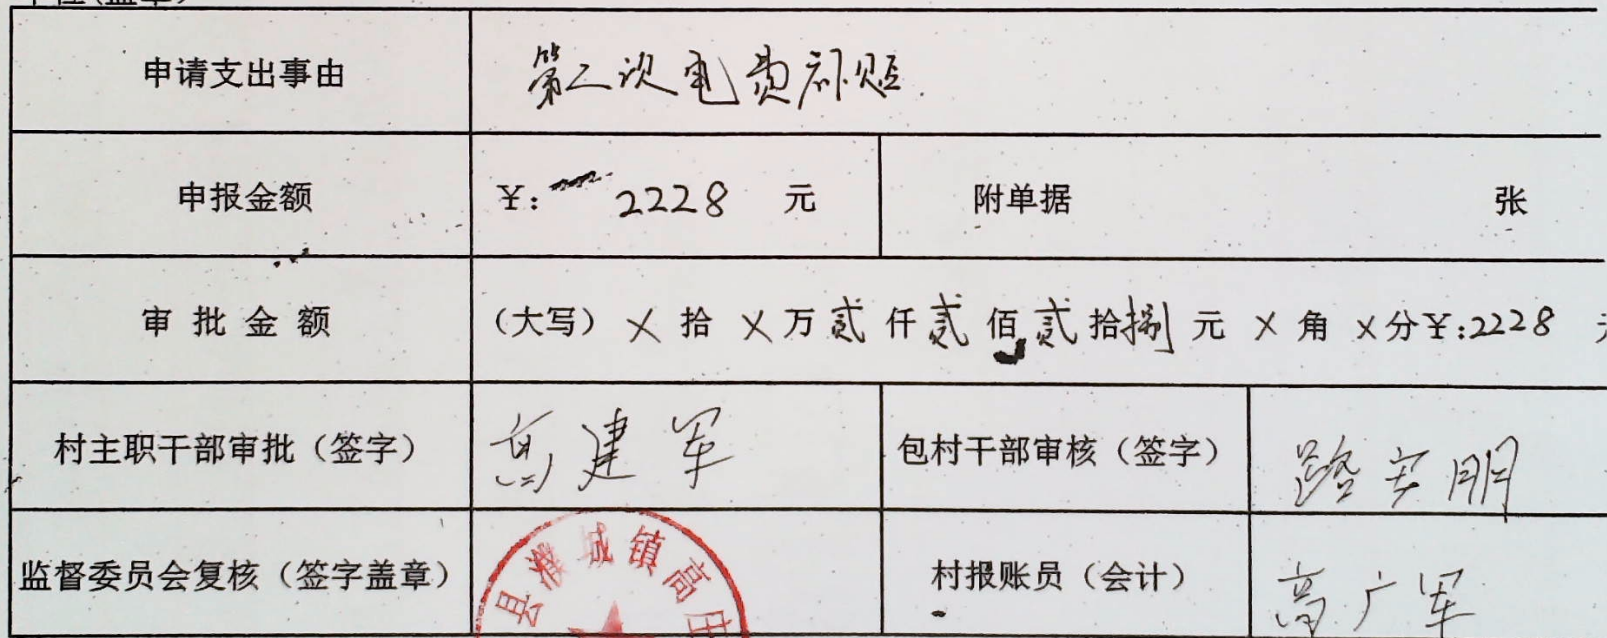 单位(盖章)
申请支出事由 第二次电费补贴
申报金额 ¥: 2228 元 附单据 张
审批金额 (大写) X 拾 X 万 贰 仟 贰 佰 贰 拾 捌 元 X 角 X 分 ¥:2228 元
村主职干部审批（签字） 高建军 包村干部审核（签字） 路 朋
监督委员会复核（签字盖章） 县濮城镇高庄 村报账员（会计） 高广军